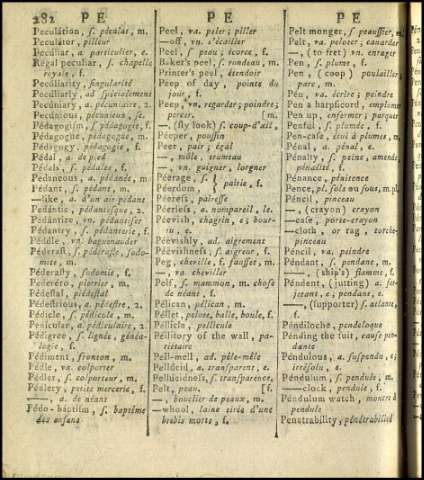 282 P E
P E
P E
Peculátion, s. péculat, m.
Peculátor, pilleur
Peculiar, a. particulier, e.
Régal peculiar, s. chapelle
royale, f.
Peculiárity, singularité
Peculiarly, ad. spécialement
Pecúniary, a. pécuniaire, 2.
Pecúnious, pécunieux, se.
Pédagogism, s. pédagogie, f.
Pédagogue, pédagogue, m.
Pédagogy, pédagogie, f.
Pédal, a. de pied
Pédals, s. pédales, f.
Pedáneous, a. pédanée, m
Pédant, s. pédant, m.
—like, a. d'un air pédant
Pedántic, pédantesque, 2.
Pédantize, vn. pédantiser
Pédantry, s. pédanterie, f.
Péddle, vn. baguenauder
Péderast, s. pédéraste, sodo-
mite, m.
Péderasty, sodomie, f.
Pederéro, pierrier, m.
Pédestal, piédestal
Pedéstrious, a. pédestre, 2.
Pédicle, s. pédicule, m.
Pedícular, a. pédiculaire, 2.
Pédigree, s. lignée, généa-
logie, f.
Pédiment, fronton, m.
Pédle, vn. colporter
Pédler, s. colporteur, m.
Péplery, petite mercerie, f.
—, a. de néant
Pédo-báptism, s. baptême
des enfans
Peel, va. peler; piller
—off, vn. s'écailler
Peel, s. peau; écorce, f.
Baker's peel, s. rondeau, m.
Printer's peel, étendoir
Peep of day, pointe du
jour, f.
Peep, vn. regarder; poindre;
percer.
—, (fly look) s. coup-d'œil, [m.
Péeper, poussin
Peer, pair; égal
—, môle, trumeau
—, vn. guigner, lorgner
Péerage, s. } pairie, f.
Péerdom,
Péeress, pairesse
Péerless, a. nompareil, le.
Péevish, chagrin, e; bour-
ru, e.
Péevishly, ad. aigrement
Péevishness, s. aigreur, f.
Peg, cheville, f. fausset, m.
—, va. cheviller
Pelf, s. mammon, m. chose
de néant, f.
Pélican, pélican, m.
Péllet, pelote, balle, boule, f.
Péllicle, pellicule
Péllitory of the wall, pa-
riétaire
Pell-mell, ad. pêle-mêle
Pellúcid, a. transparent, e.
Pellúcidness, s. transparence,
Pelt, peau, [f.
—, bouclier de peaux, m.
—whool, laine tirée d'une
brebis morte, f.
Pelt monger, s. peaussier, m.
Pelt, va. peloter; canarder
—, (to fret) vn. enrager
Pen, s. plume, f.
Pen, (coop) poulailler,
parc, m.
Pén, va. écrire; poindre
Pen a harpsicord, emplumer
Pen up, enfermer; parquer
Penful, s. plumée, f.
Pen-case, étui à plumes, m.
Pénal, a. pénal, e.
Pénalty, s. peine, amende,
pénalité, f.
Pénance, pénitence
Pence, pl. sols ou sous, m.pl.
Péncil, pinceau
—, (crayon) crayon
—case, porte-crayon
—cloth, or rag, torche-
pinceau
Péncil, va. peindre
Péndant, s. pendant, m.
—, (ship's) flamme, f.
Péndent, (jutting)
jettant, e; pendant, e.
—, (supporter) s. atlante,
f.
Péndiloche, pendeloque
Pénding the suit, cause pen-
dante
Péndulous, a. suspendu, e;
irrésolu, e.
Péndulum, s. pendule, m.
—clock, pendule, f.
Péndulum watch, montre à
pendule
Penetrability, pénétrabilité